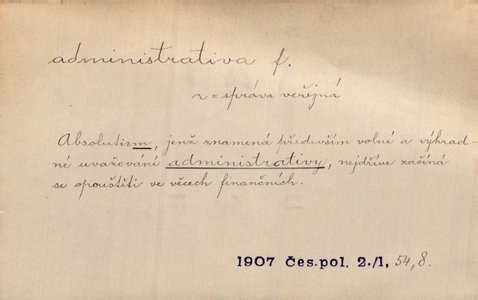 administrativa f.
r = správa veřejná
Absolutism, jenž znamená především volné a výhrad-
né uvažování administrativy, nejdříve začíná
se opouštěti ve věcech finančních.
1907 čes. pol. 2./1, 54, 8.